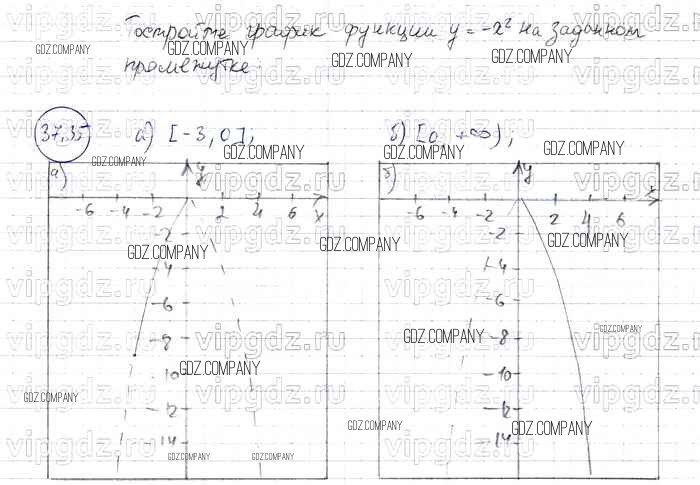 Постройте график функции y = -x² на заданном
промежутке
37.35 а) [-3, 0]; б) [0, +∞);
а) y б) y
-6 -4 -2 2 4 6 x -6 -4 -2 2 4 6 x
-2 -2
-4 -4
-6 -6
-8 -8
-10 -10
-12 -12
-14 -14
vipgdz.ru
GDZ.COMPANY